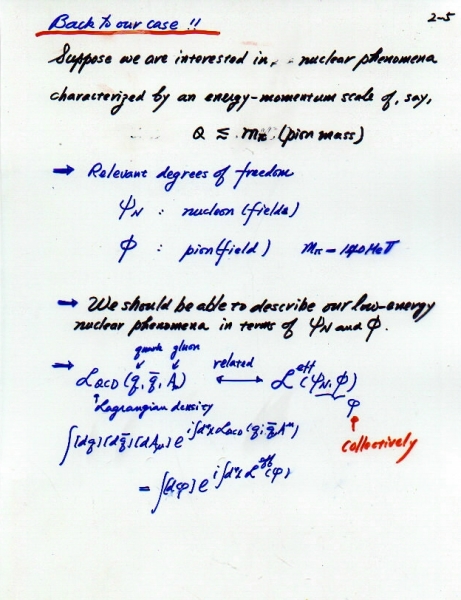 2-5
Back to our case !!
Suppose we are interested in, nuclear phenomena
characterized by an energy-momentum scale of, say,
Q ≲ mπ (pion mass)
→ Relevant degrees of freedom
ψN : nucleon (fields)
φ : pion (field) mπ ~ 140 MeV
→ We should be able to describe our low-energy
nuclear phenomena in terms of ψN and φ.
quark gluon
→ ℒQCD (q, q̄, Aμ) ←related→ ℒeff (ψN, φ)
↑ Lagrangian density
φ
↑
collectively
∫[dq][dq̄][dAμ] e^{i∫d⁴x ℒQCD (q, q̄, Aμ)}
= ∫[dφ] e^{i∫d⁴x ℒeff (φ)}